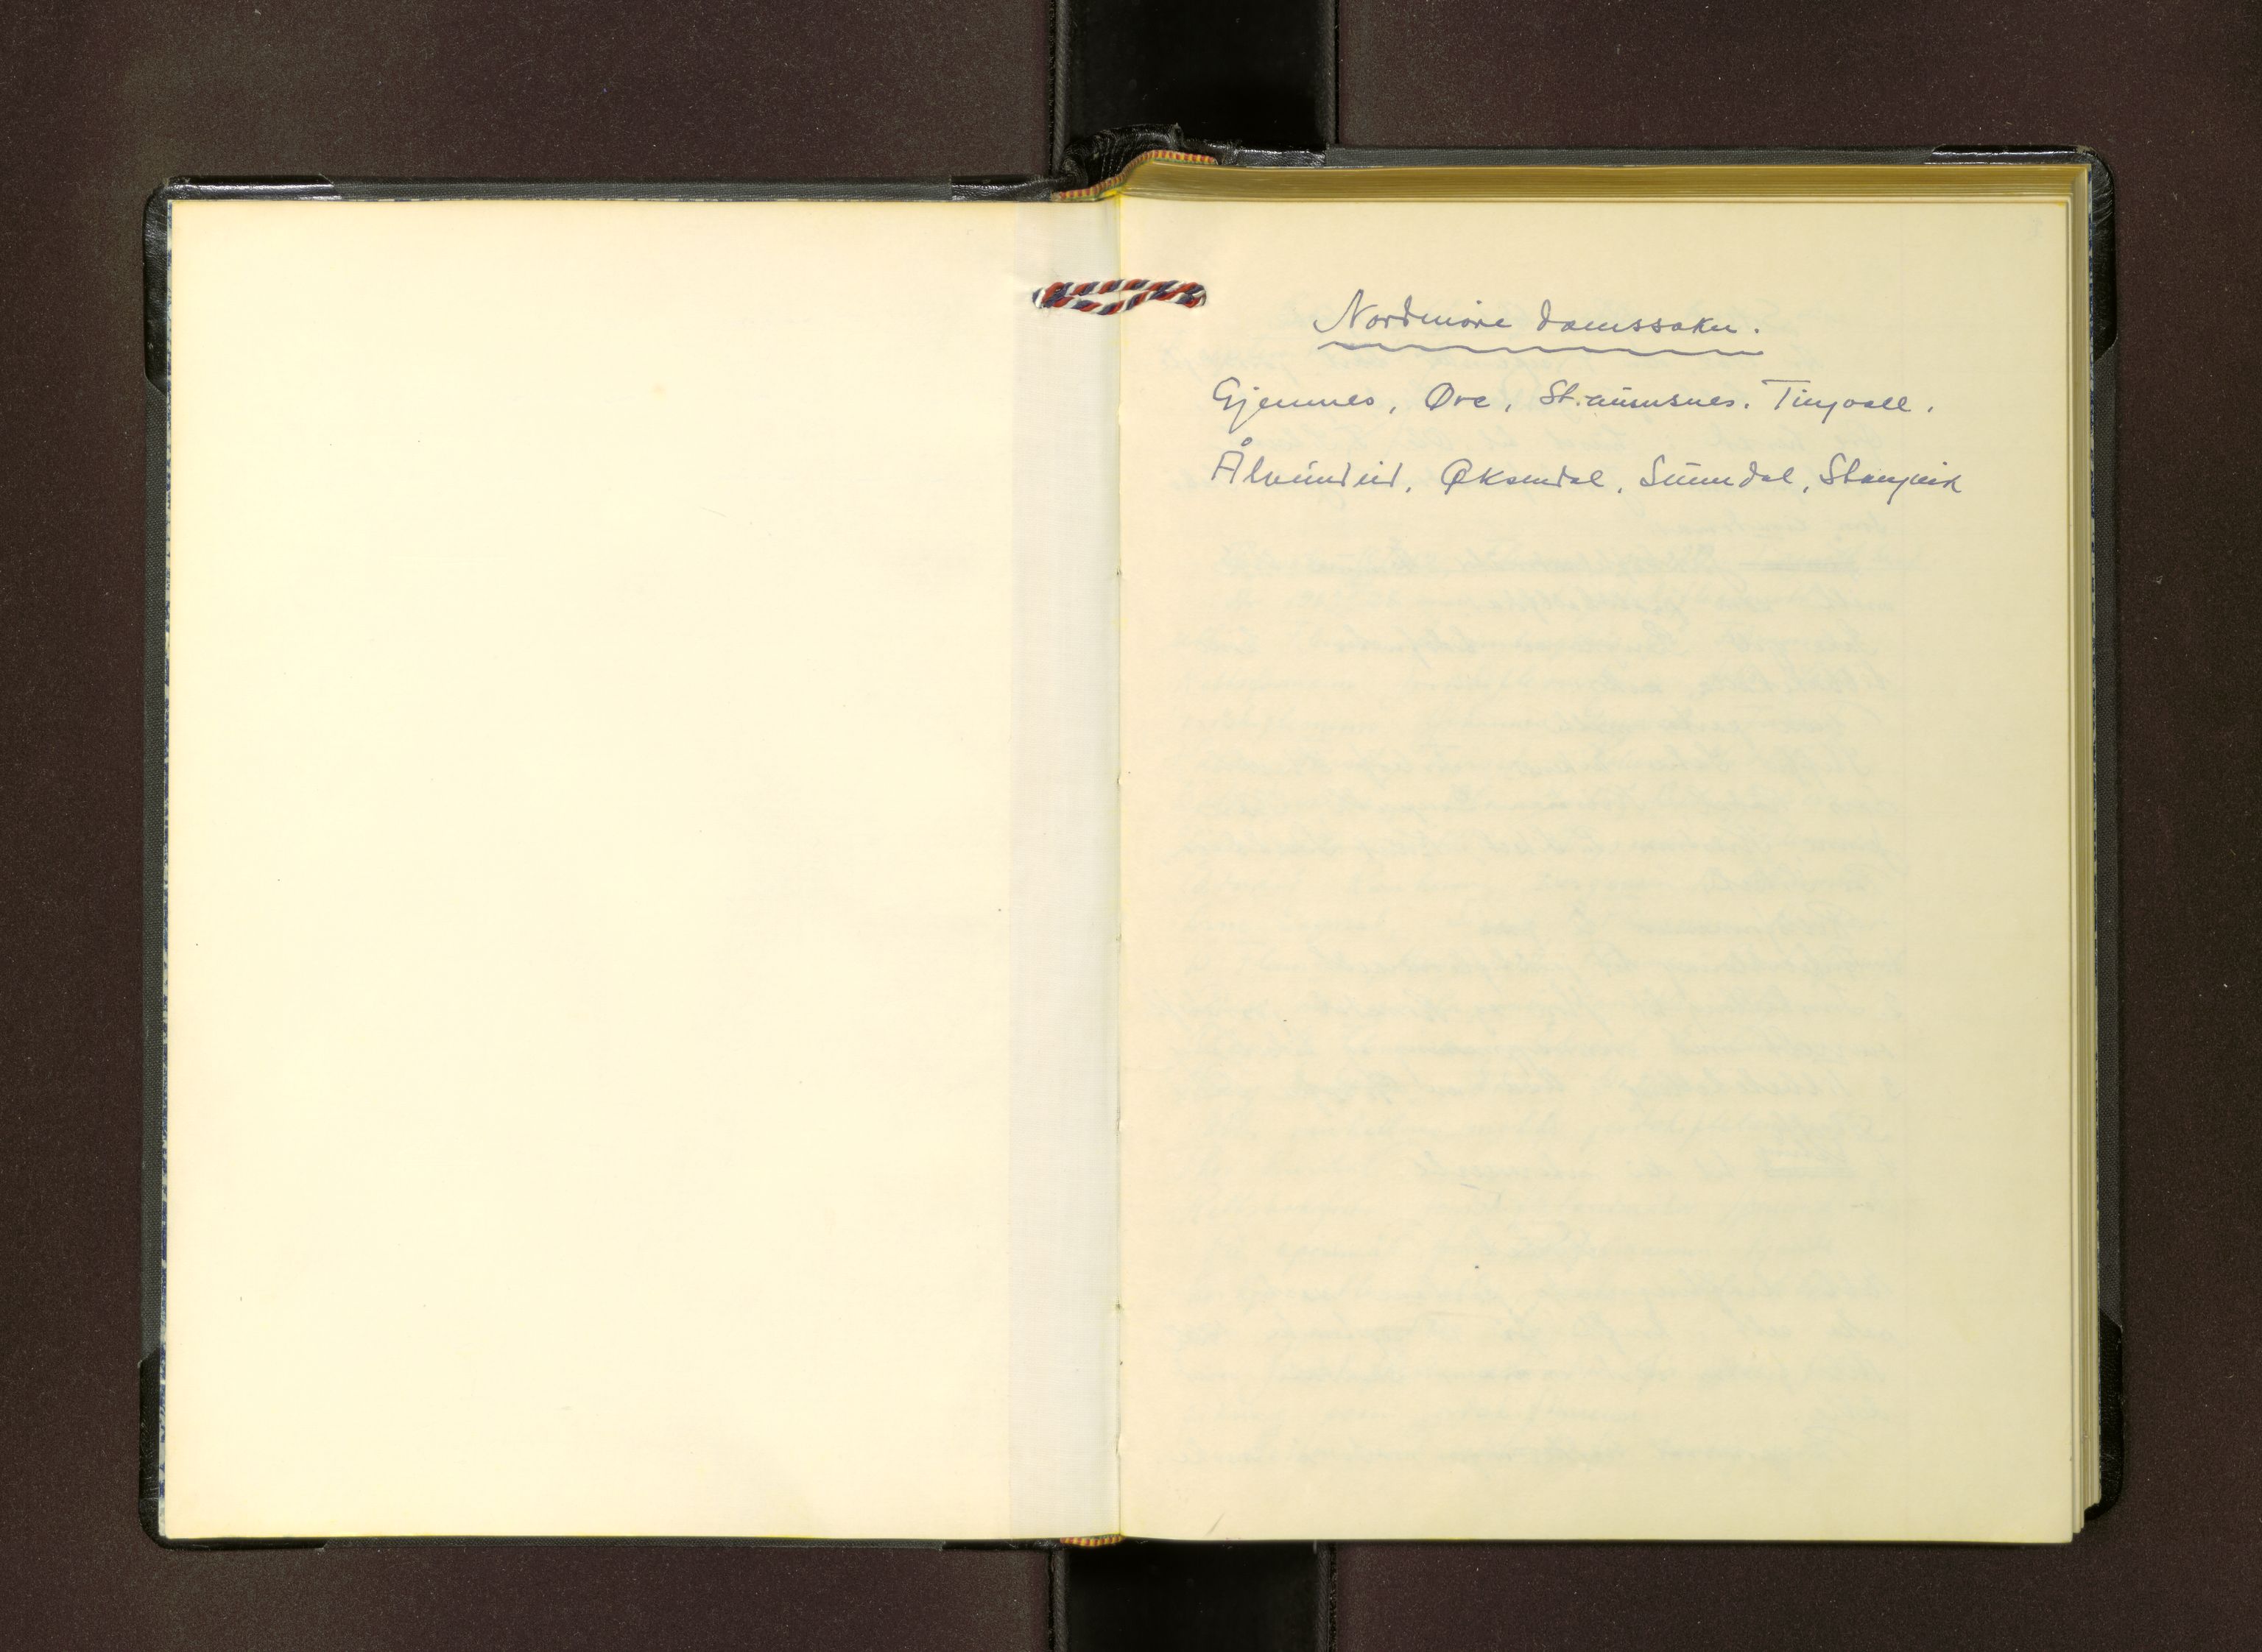 Nordmøre domssokn.
Gjemnes, Øre, Straumsnes. Tingvoll.
Ålvundeid, Øksendal, Sunndal, Stangvik